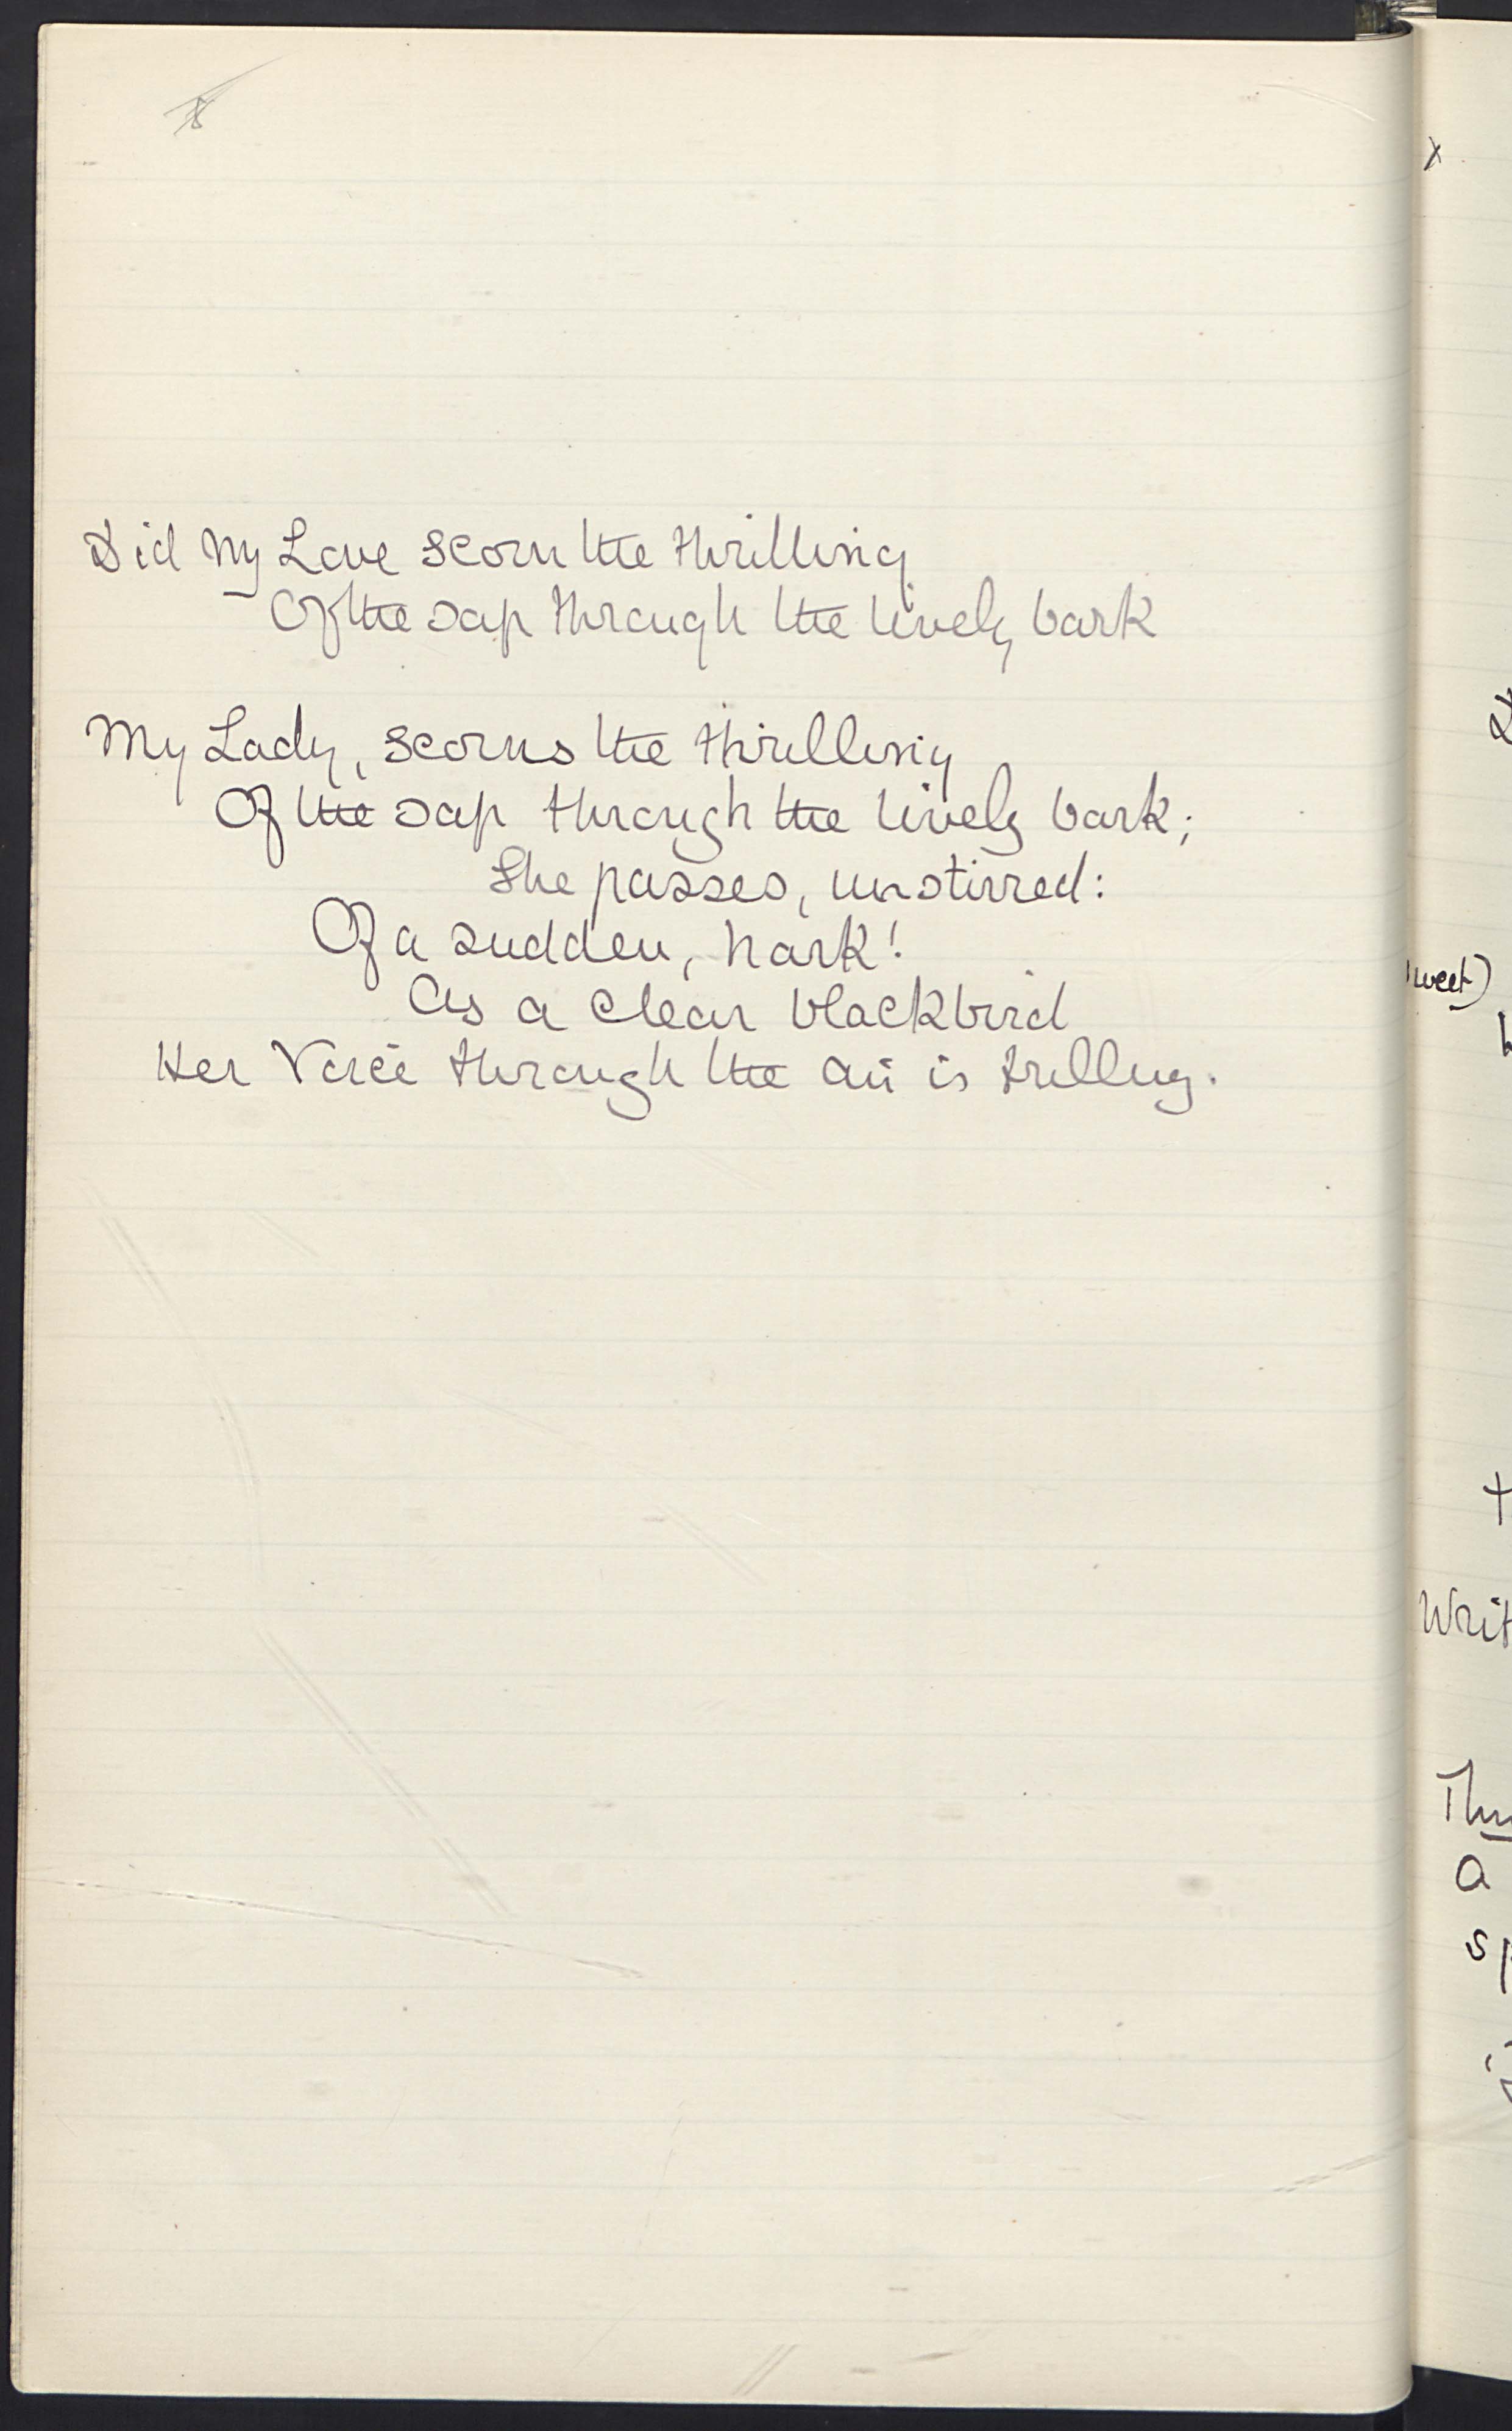 Did my Love scorn the thrilling
Of the sap through the lively bark
My Lady, scorns the thrilling
Of the sap through the lively bark;
She passes, unstirred:
Of a sudden, hark!
As a clear blackbird
Her Voice through the air is trilling.
x
weet)
+
Writ
a
sp